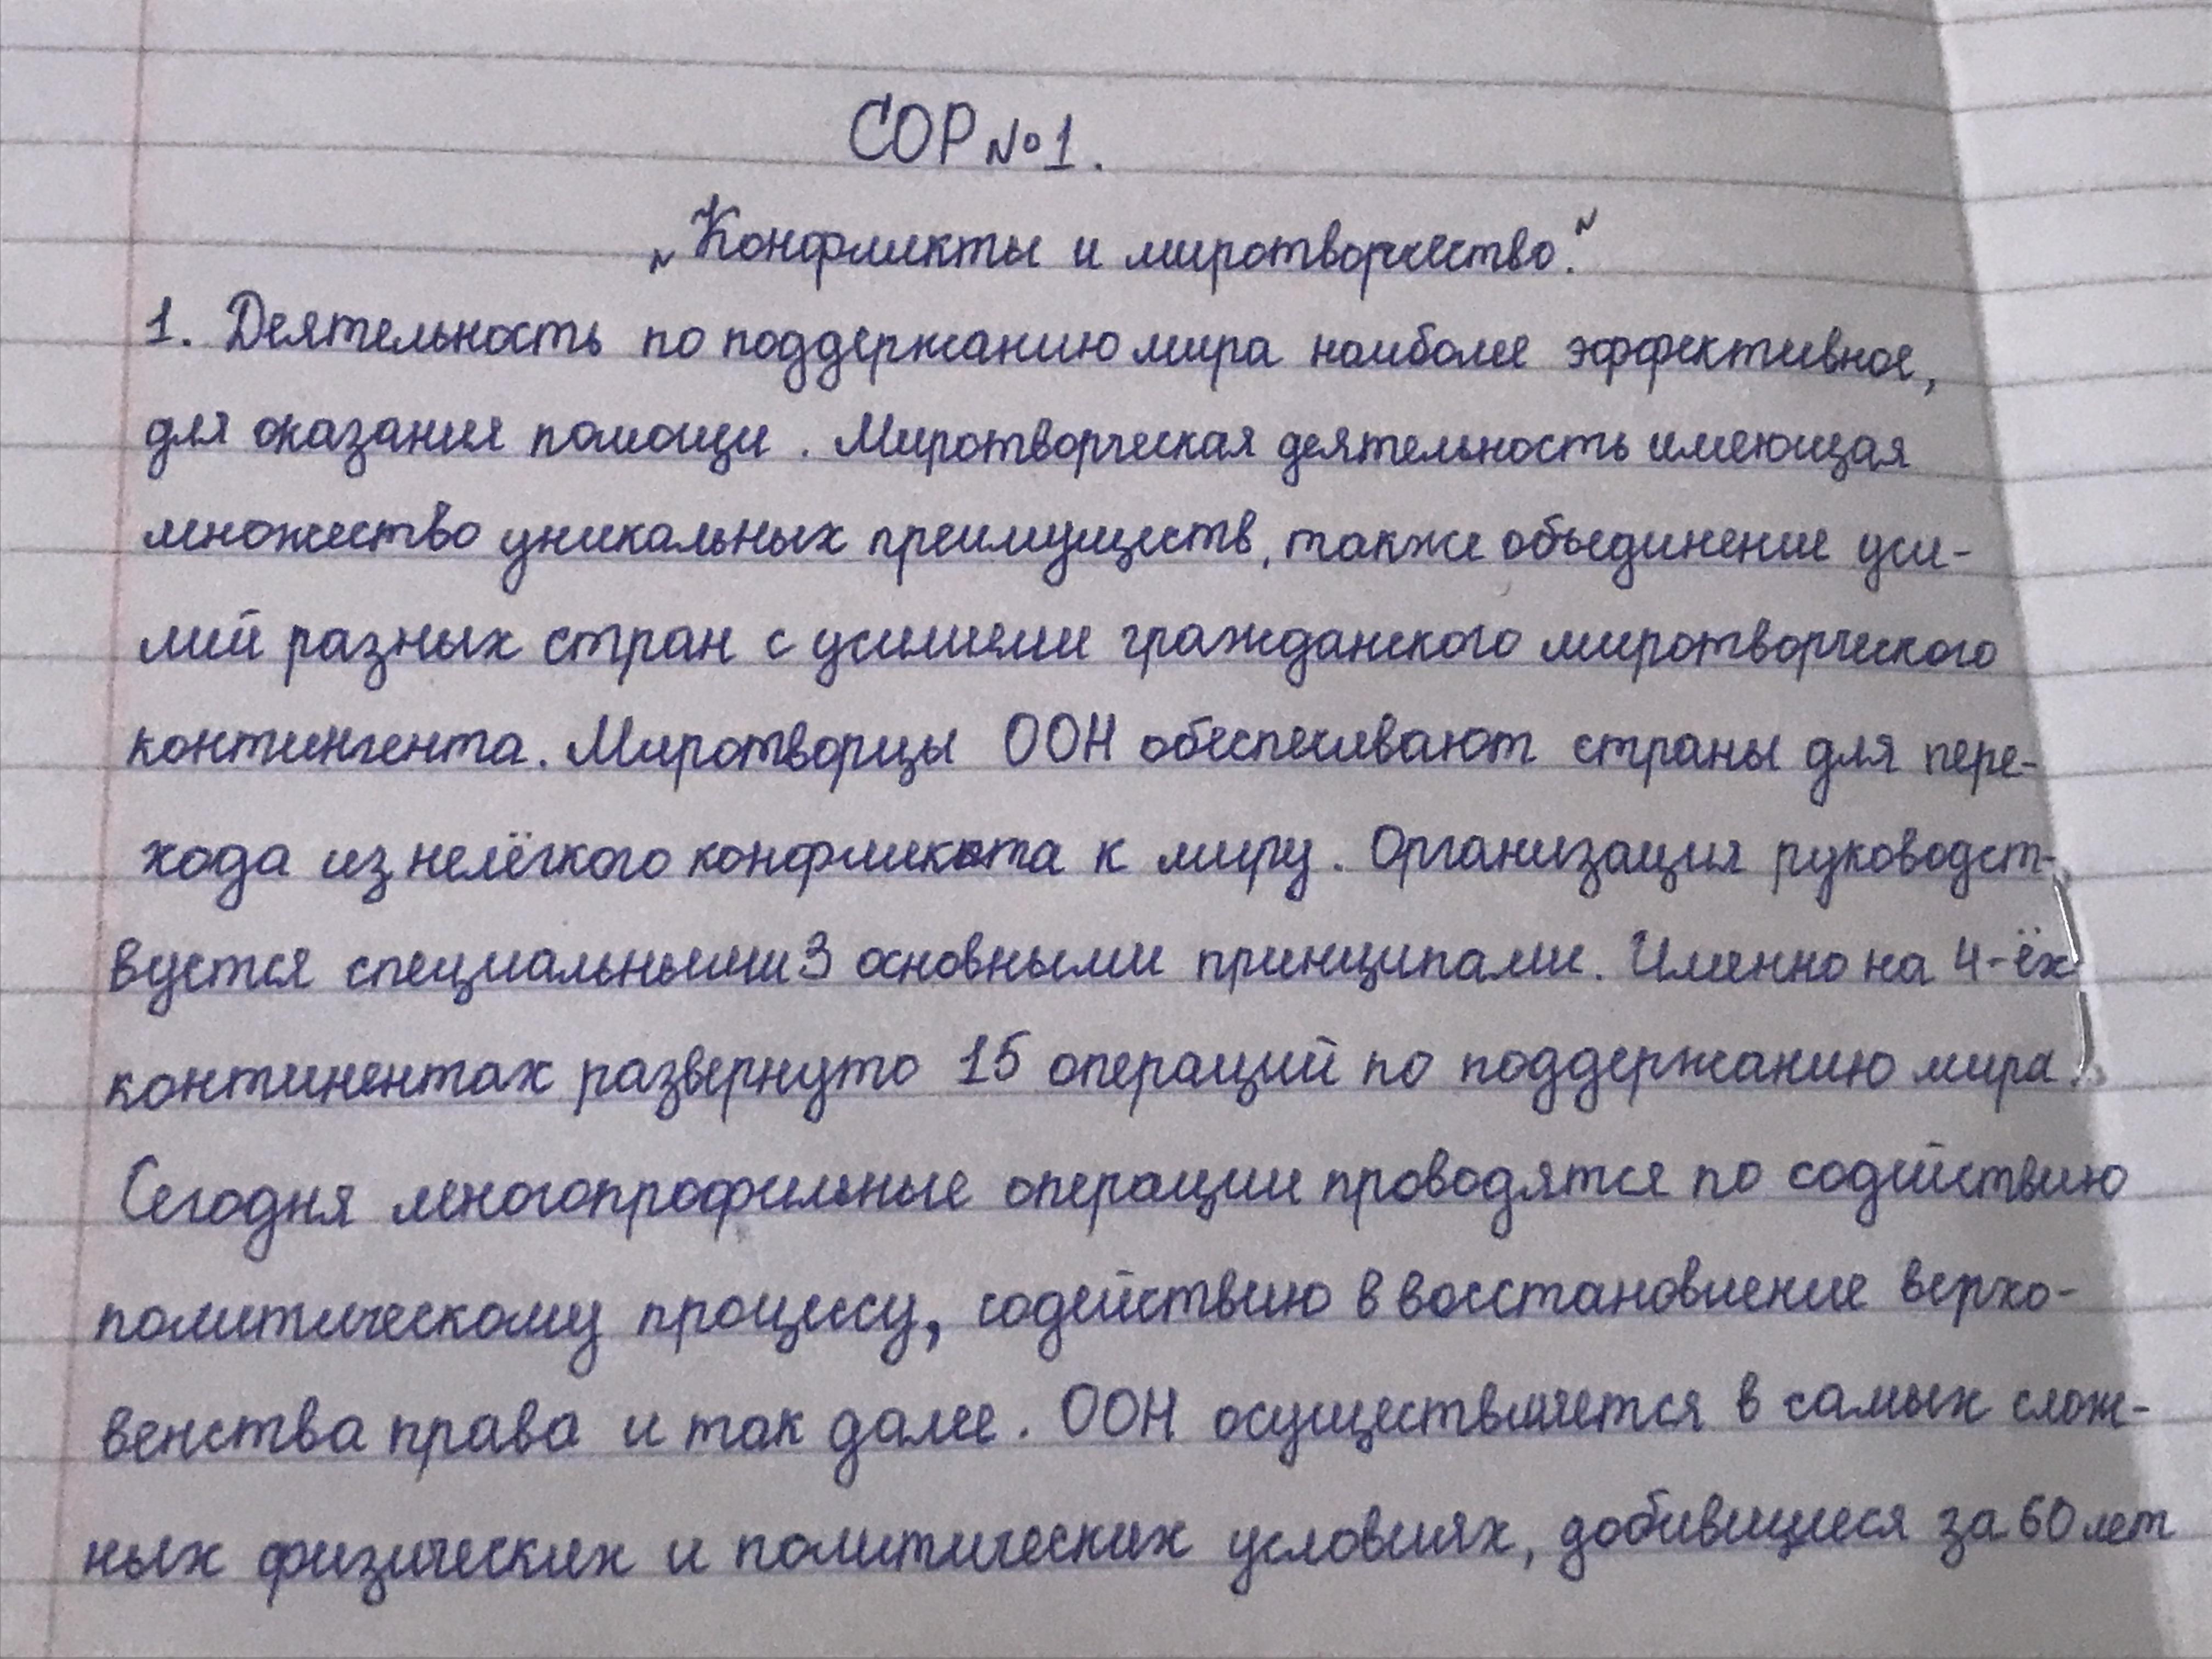 СОР №1.
„Конфликты и миротворчество."
1. Деятельность по поддержанию мира наиболее эффективное,
для оказания помощи. Миротворческая деятельность имеющая
множество уникальных преимуществ, также обьединение уси-
лий разных стран с усилиями гражданского миротворческого
контингента. Миротворцы ООН обеспечивают страны для пере-
хода из нелёгкого конфликта к миру. Организация руководст-
вуется специальными 3 основными принципами. Именно на 4-ёх
континентах развернуто 15 операций по поддержанию мира.
Сегодня многопрофильные операции проводятся по содействию
политическому процессу, содействию в восстановление верхо-
венства права и так далее. ООН осуществляется в самых слож-
ных физических и политических условиях, добившиеся за 60 лет